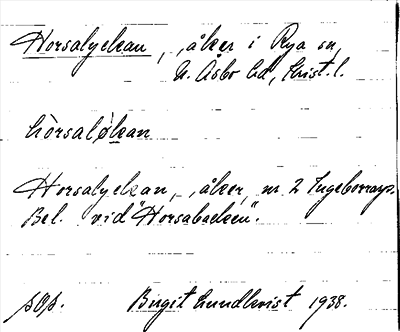 Horsalyckan, åker i Rya sn,
N. Åsbo hd, Krist. l.
hòrsaløkan
Horsalyckan, åker, nr 2 Ingeborrarp.
Bel. vid "Horsabacken".
Birgit Lundkvist 1938.